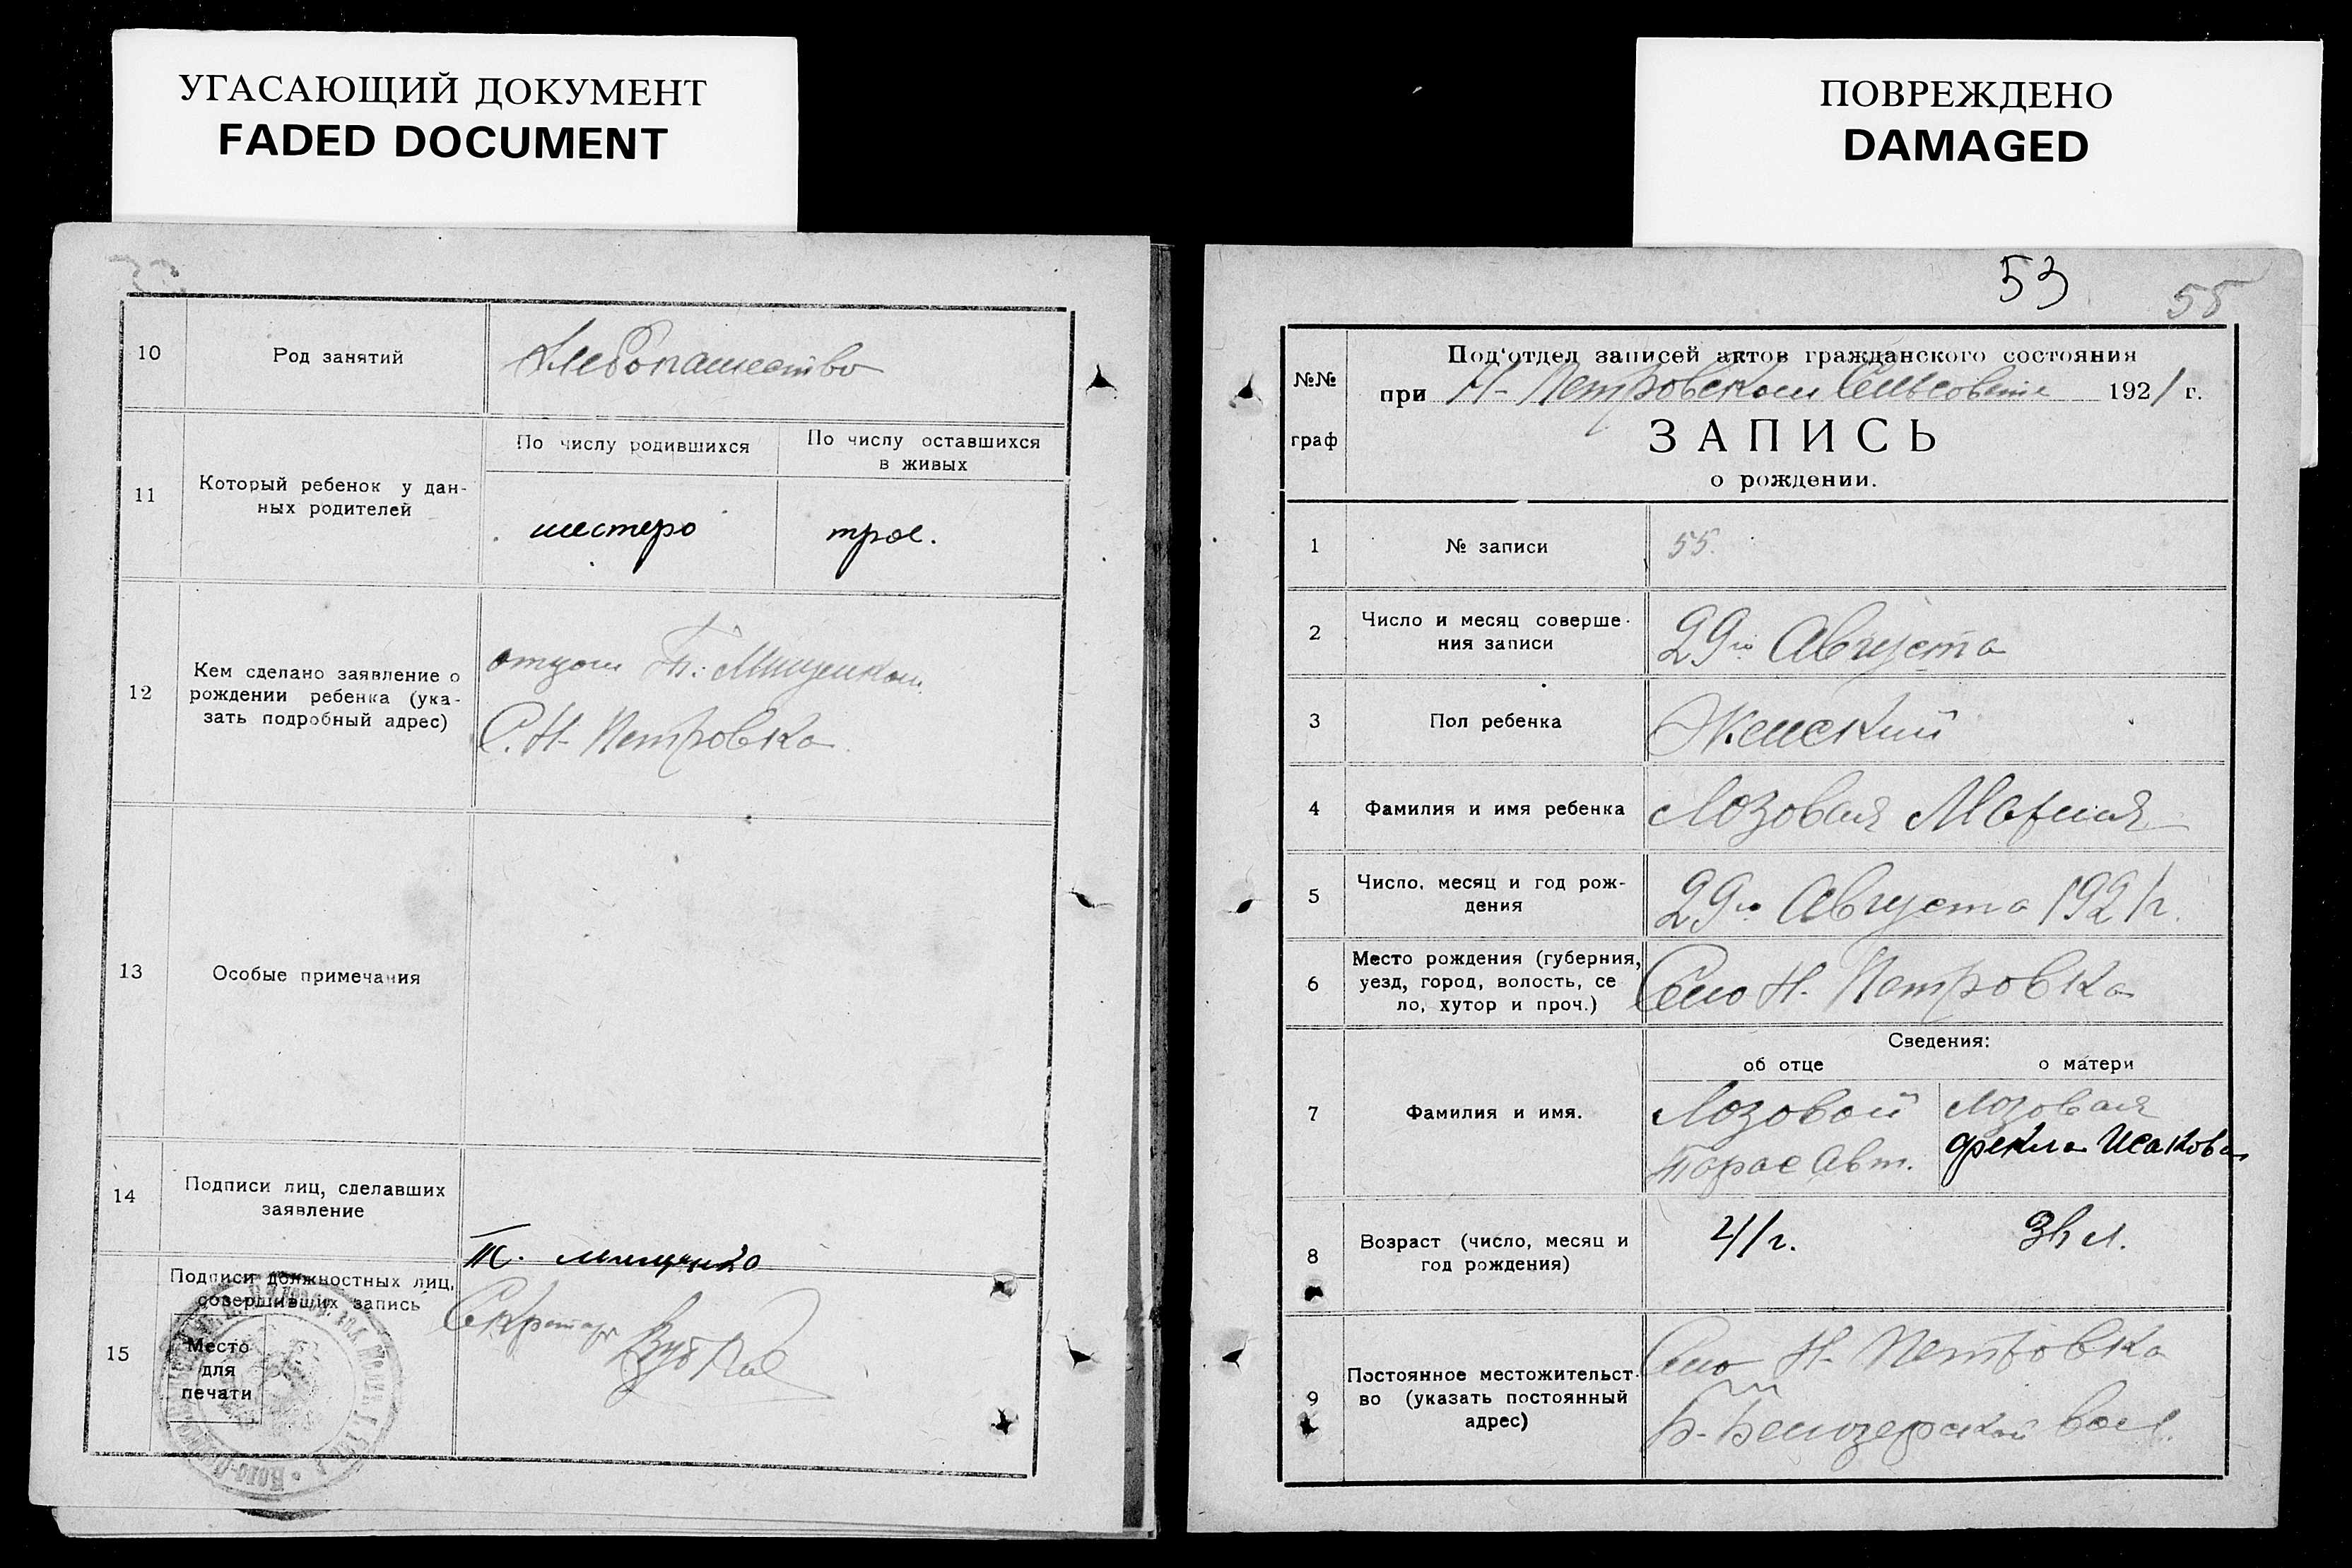 УГАСАЮЩИЙ ДОКУМЕНТ
FADED DOCUMENT
10
Род занятий
Хлебопашество
11
Который ребенок у дан-
ных родителей
По числу родившихся
По числу оставшихся
в живых
шестеро
трое.
12
Кем сделано заявление о
рождении ребенка (ука-
зать подробный адрес)
отцом Т. Мищенком
С. Н-Петровка
13
Особые примечания
14
Подписи лиц, сделавших
заявление
Т. Мищенко
15
Подписи должностных лиц,
совершивших запись
Место
для
печати
Секретарь
ПОВРЕЖДЕНО
DAMAGED
53
55
№№
граф
Под'отдел записей актов гражданского состояния
при Н-Петровском Сельсовете 1921 г.
ЗАПИСЬ
о рождении.
1
№ записи
55.
2
Число и месяц соверше-
ния записи
29го Августа
3
Пол ребенка
Женский
4
Фамилия и имя ребенка
Лозовая Мария
5
Число, месяц и год рож-
дения
29го Августа 1921 г.
6
Место рождения (губерния,
уезд, город, волость, се
ло, хутор и проч.)
Село Н-Петровка
Сведения:
об отце
о матери
7
Фамилия и имя.
Лозовой
Тарас Авт.
Лозовая
Фекла Исакова
8
Возраст (число, месяц и
год рождения)
41 г.
9
Постоянное местожительст-
во (указать постоянный
адрес)
Село Н-Петровка
Б-Белозерской вол.